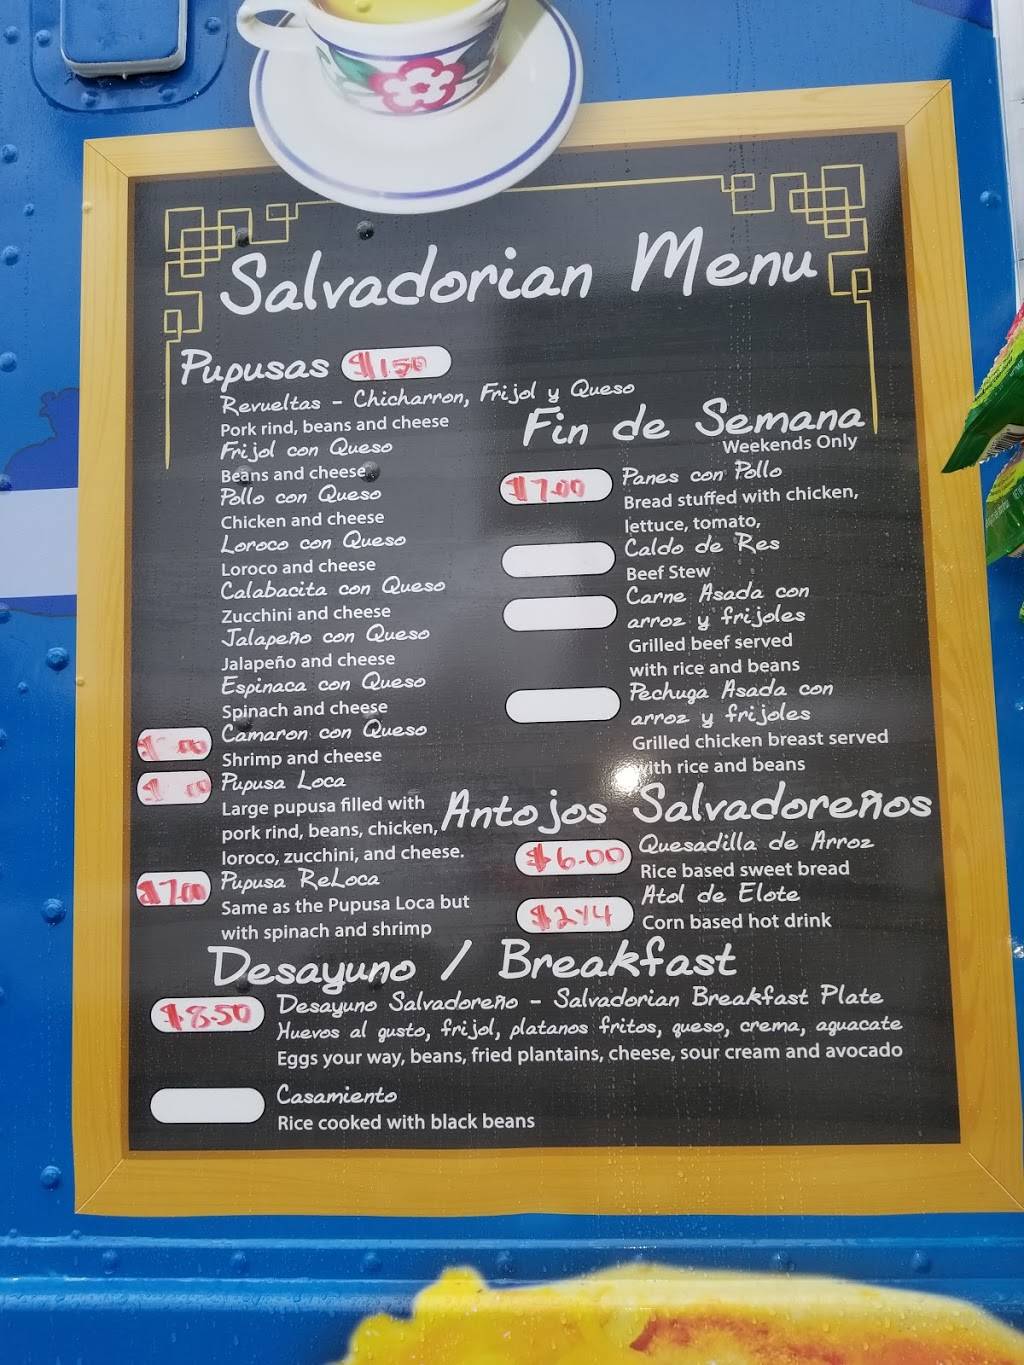 Salvadorian Menu
Pupusas $1.50
Revueltas - Chicharron, Frijol y Queso
Pork rind, beans and cheese
Frijol con Queso
Beans and cheese
Pollo con Queso
Chicken and cheese
Loroco con Queso
Loroco and cheese
Calabacita con Queso
Zucchini and cheese
Jalapeño con Queso
Jalapeño and cheese
Espinaca con Queso
Spinach and cheese
Camaron con Queso
Shrimp and cheese
Pupusa Loca
Large pupusa filled with
pork rind, beans, chicken,
loroco, zucchini, and cheese.
$7.00 Pupusa ReLoca
Same as the Pupusa Loca but
with spinach and shrimp
Fin de Semana
Weekends Only
$7.00 Panes con Pollo
Bread stuffed with chicken,
lettuce, tomato,
Caldo de Res
Beef Stew
Carne Asada con
arroz y frijoles
Grilled beef served
with rice and beans
Pechuga Asada con
arroz y frijoles
Grilled chicken breast served
with rice and beans
Antojos Salvadoreños
$6.00 Quesadilla de Arroz
Rice based sweet bread
Atol de Elote
Corn based hot drink
Desayuno / Breakfast
$8.50 Desayuno Salvadoreño - Salvadorian Breakfast Plate
Huevos al gusto, frijol, platanos fritos, queso, crema, aguacate
Eggs your way, beans, fried plantains, cheese, sour cream and avocado
Casamiento
Rice cooked with black beans